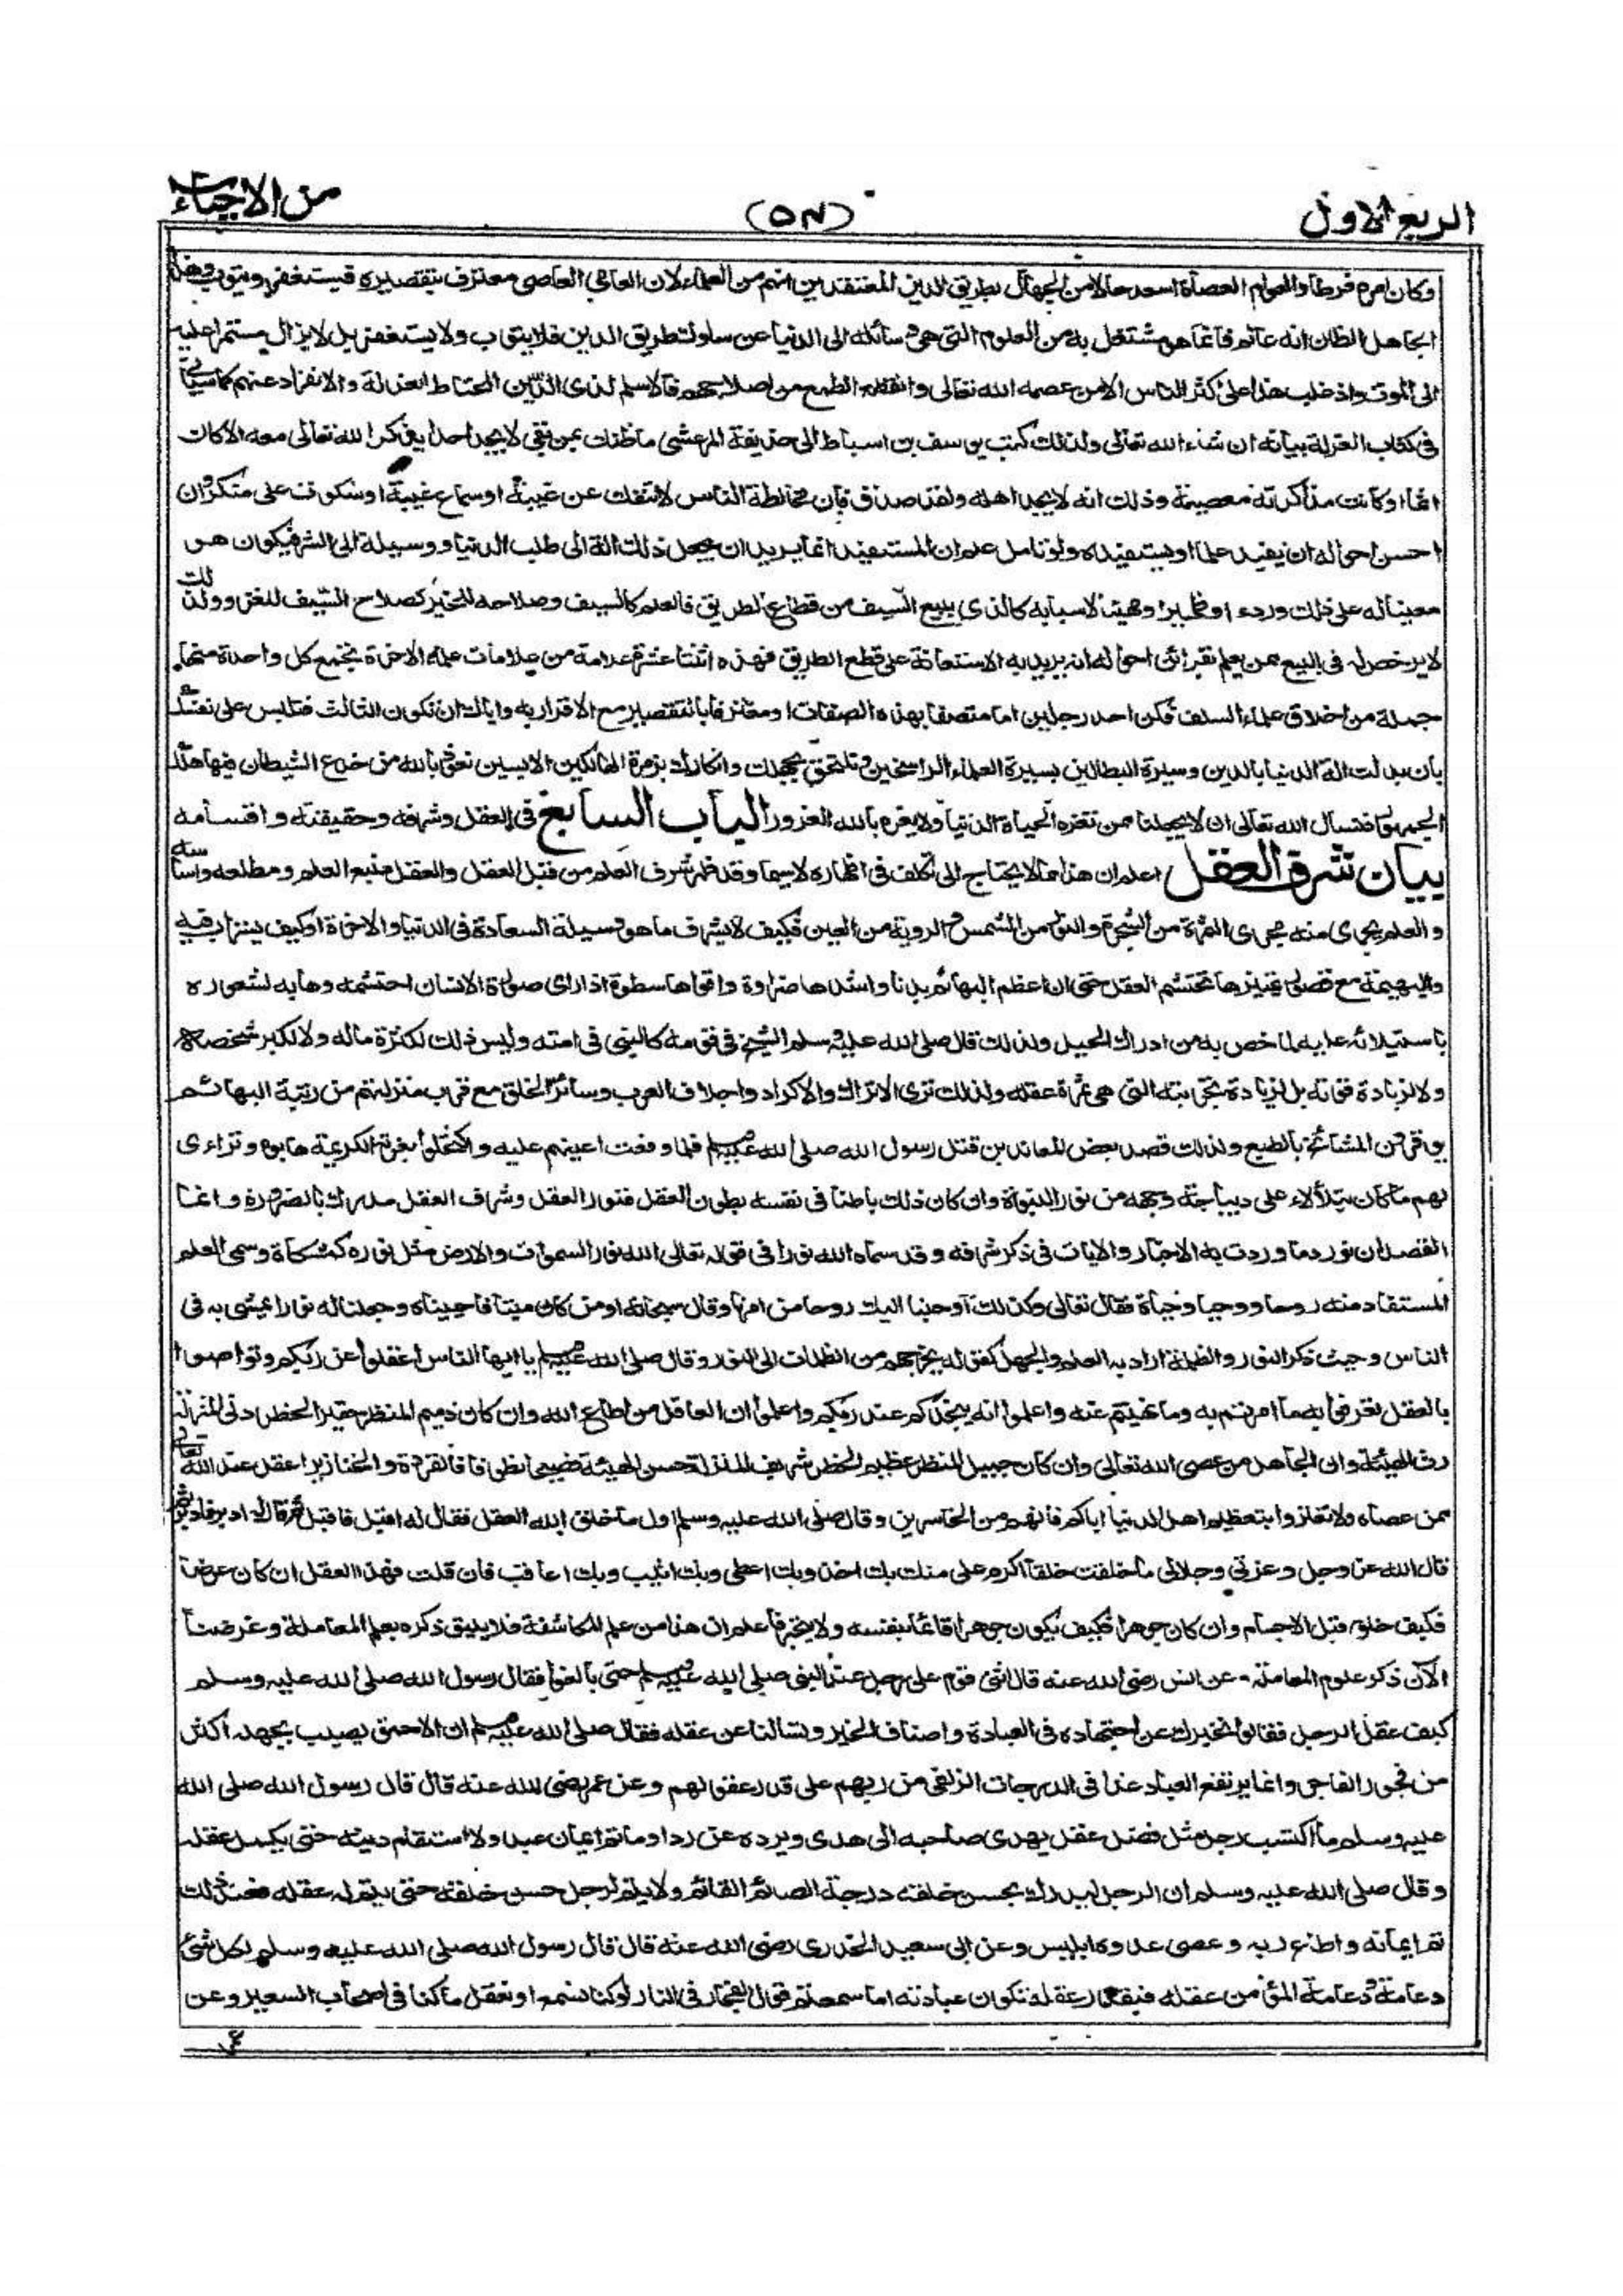 الربع الاول
(٥٧)
من الاحياء
وكان امره فرطا والعوام العصاة اسعد حالا من الجهال بطريق الدين المعتقدين انهم من العلماء لان العامي العاصي معترف بتقصيره فيستغفر ويتوب وهذا
الجاهل الظان انه عالم فان ما هو مشتغل به من العلوم التي هي وسائله الى الدنيا عن سلوك طريق الدين فلا يتوب ولا يستغفر بل لا يزال مستمرا عليه
الى الموت واذ غلب هذا على اكثر الناس الا من عصمه الله تعالى وانقطع الطمع من اصلاحهم فالاسلم لذي الدين المحتاط العزلة والانفراد عنهم كما سياتي
في كتاب العزلة بيانه ان شاء الله تعالى ولذلك كتب يوسف بن اسباط الى حذيفة المرعشي ما ظنك بمن بقي لا يجد احدا يذكر الله تعالى معه الا كان
اثما او كانت مذاكرته معصية وذلك انه لا يجد اهله ولقد صدق فان مخالطة الناس لا تنفك عن غيبة او سماع غيبة او سكوت على منكر وان
احسن احواله ان يفيد علما او يستفيده ولو تامل علم ان المستفيد انما يريد ان يجعل ذلك الة الى طلب الدنيا ووسيلة الى الشر فيكون هو
معينا له على ذلك وردءا وظهيرا ومهيئا لاسبابه كالذي يبيع السيف من قطاع الطريق فالعلم كالسيف وصلاحه للخير كصلاح السيف للغزو ولذلك
لا يرخص له في البيع ممن يعلم بقرائن احواله انه يريد به الاستعانة على قطع الطريق فهذه اثنتا عشرة علامة من علامات علماء الاخرة تجمع كل واحدة منها
جملة من اخلاق علماء السلف فكن احد رجلين اما متصفا بهذه الصفات او معترفا بالتقصير مع الاقرار به واياك ان تكون الثالث فتلبس على نفسك
بان بدلت الة الدنيا بالدين وسيرة البطالين بسيرة العلماء الراسخين وتلتحق بجهلك وانكارك بزمرة الهالكين الايسين نعوذ بالله من خدع الشيطان فبها هلك
الجمهور فنسال الله تعالى ان لا يجعلنا ممن تغره الحياة الدنيا ولا يغره بالله الغرور الباب السابع في العقل وشرفه وحقيقته واقسامه
بيان شرف العقل اعلم ان هذا مما لا يحتاج الى تكلف في اظهاره لا سيما وقد ظهر شرف العلم من قبل العقل والعقل منبع العلم ومطلعه واساسه
والعلم يجري منه مجرى الثمرة من الشجرة والنور من الشمس والروية من العين فكيف لا يشرف ما هو وسيلة السعادة في الدنيا والاخرة او كيف يستراب فيه
والبهيمة مع قصور تمييزها تحتشم العقل حتى ان اعظم البهائم بدنا واشدها ضراوة واقواها سطوة اذا رأى صورة الانسان احتشمه وهابه لشعوره
باستيلائه عليه لما خص به من ادراك الحيل ولذلك قال صلى الله عليه وسلم الشيخ في قومه كالنبي في امته وليس ذلك لكثرة ماله ولا لكبر شخصه
ولا لزيادة قوته بل لزيادة تجربته التي هي ثمرة عقله ولذلك ترى الاتراك والاكراد واجلاف العرب وسائر الخلق مع قرب منزلتهم من رتبة البهائم
يوقرون المشائخ بالطبع ولذلك قصد بعض المعاندين قتل رسول الله صلى الله عليه وسلم فلما وقعت اعينهم عليه واكتحلوا بغرته الكريمة هابوه وتراءى
لهم ما كان يتلألاء على ديباجة وجهه من نور النبوة وان كان ذلك باطنا في نفسه بطون العقل فنور العقل وشرف العقل مدرك بالضرورة وانما
القصد ان نورد ما وردت به الاخبار والايات في ذكر شرفه وقد سماه الله نورا في قوله تعالى الله نور السموات والارض مثل نوره كمشكاة وسمى العلم
المستفاد منه روحا ووحيا وحياة فقال تعالى وكذلك اوحينا اليك روحا من امرنا وقال سبحانه اومن كان ميتا فاحييناه وجعلنا له نورا يمشي به في
الناس وحيث ذكر النور والظلمة اراد به العلم والجهل كقوله يخرجهم من الظلمات الى النور وقال صلى الله عليه وسلم يا ايها الناس اعقلوا عن ربكم وتواصوا
بالعقل تعرفوا به ما امرتم به وما نهيتم عنه واعلموا انه ينجدكم عند ربكم واعلموا ان العاقل من اطاع الله وان كان ذميم المنظر حقير الخطر دني المنزلة
رث الهيئة وان الجاهل من عصى الله تعالى وان كان جميل المنظر عظيم الخطر شريف المنزلة حسن الهيئة فصيحا نطوقا فالقردة والخنازير اعقل عند الله تعالى
ممن عصاه ولا تغتروا بتعظيم اهل الدنيا اياكم فانهم من الخاسرين وقال صلى الله عليه وسلم اول ما خلق الله العقل فقال له اقبل فاقبل ثم قال له ادبر فادبر ثم
قال الله عز وجل وعزتي وجلالي ما خلقت خلقا اكرم علي منك بك اخذ وبك اعطي وبك اثيب وبك اعاقب فان قلت فهذا العقل ان كان عرضا
فكيف خلق قبل الاجسام وان كان جوهرا فكيف يكون جوهرا قائما بنفسه ولا يتحيز فاعلم ان هذا من علم المكاشفة فلا يليق ذكره بعلم المعاملة وغرضنا
الآن ذكر علوم المعاملة - عن انس رضي الله عنه قال اثنى قوم على رجل عند النبي صلى الله عليه وسلم حتى بالغوا فقال رسول الله صلى الله عليه وسلم
كيف عقل الرجل فقالوا نخبرك عن اجتهاده في العبادة واصناف الخير وتسالنا عن عقله فقال صلى الله عليه وسلم ان الاحمق يصيب بجهله اكثر
من فجور الفاجر وانما يرتفع العباد غدا في الدرجات الزلفى من ربهم على قدر عقولهم وعن عمر رضي الله عنه قال قال رسول الله صلى الله
عليه وسلم ما اكتسب رجل مثل فضل عقل يهدي صاحبه الى هدى ويرده عن ردا وما تم ايمان عبد ولا استقام دينه حتى يكمل عقله
وقال صلى الله عليه وسلم ان الرجل ليدرك بحسن خلقه درجة الصائم القائم ولا يتم لرجل حسن خلقه حتى يتم له عقله فعند ذلك
تم ايمانه واطاع ربه وعصى عدوه ابليس وعن ابي سعيد الخدري رضي الله عنه قال قال رسول الله صلى الله عليه وسلم لكل شئ
دعامة ودعامة المؤمن عقله فبقدر عقله تكون عبادته اما سمعتم قول الفجار في النار لو كنا نسمع او نعقل ما كنا في اصحاب السعير وعن